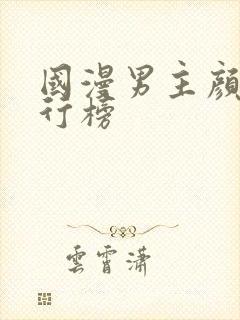 國漫男主顏
行榜
雲霄瀟